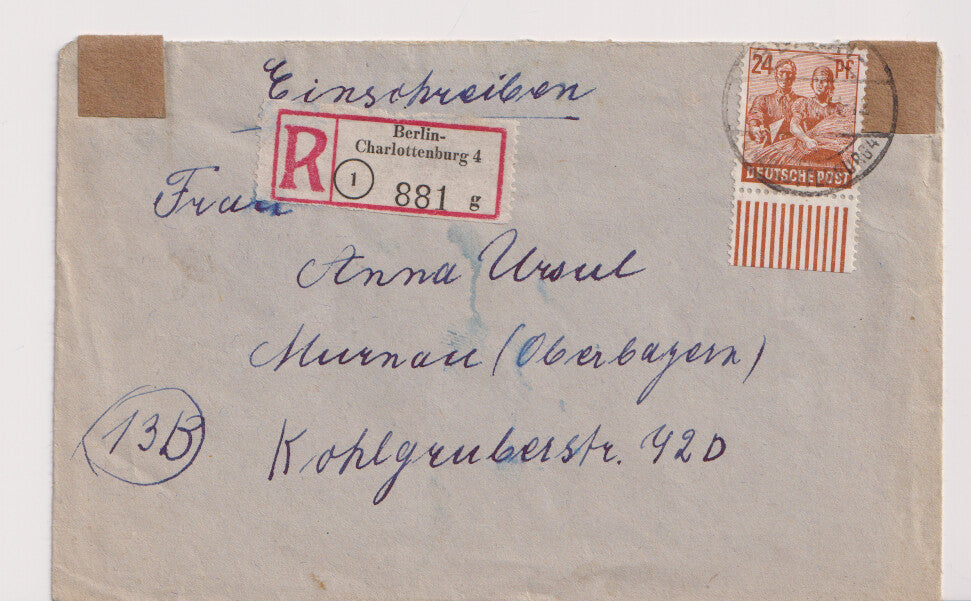 Einschreiben
R
Berlin-
Charlottenburg 4
1
881 g
24 Pf.
DEUTSCHE POST
Frau
Anna Ursul
Murnau (Oberbayern)
13B
Kohlgruberstr. 42D